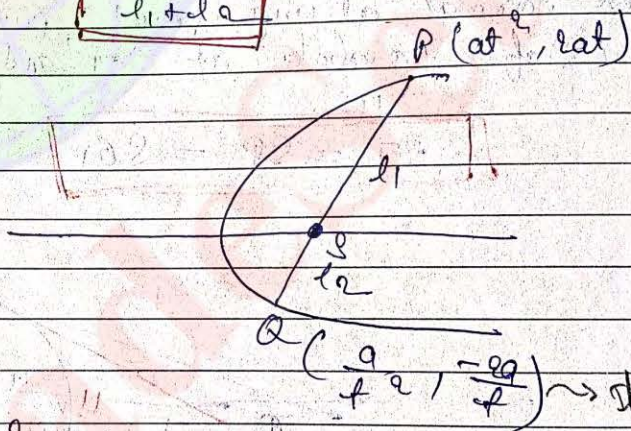 l₁ + l₂
P (at², 2at)
l₁
S
l₂
Q
(a/t², -2a/t)